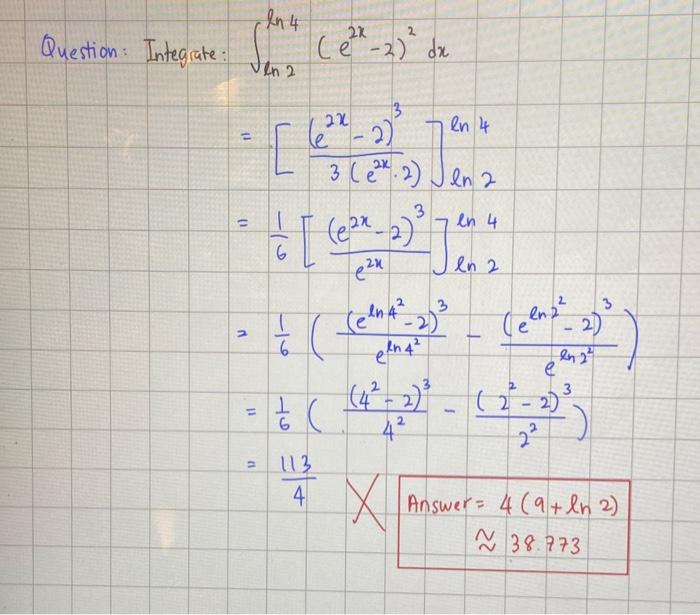 Question: Integrate: ∫_{ln 2}^{ln 4} (e^{2x} - 2)^2 dx
= [ (e^{2x} - 2)^3 / 3(e^{2x} · 2) ]_{ln 2}^{ln 4}
= 1/6 [ (e^{2x} - 2)^3 / e^{2x} ]_{ln 2}^{ln 4}
= 1/6 ( (e^{ln 4^2} - 2)^3 / e^{ln 4^2} - (e^{ln 2^2} - 2)^3 / e^{ln 2^2} )
= 1/6 ( (4^2 - 2)^3 / 4^2 - (2^2 - 2)^3 / 2^2 )
= 113/4 X
Answer = 4(9 + ln 2)
≈ 38.773